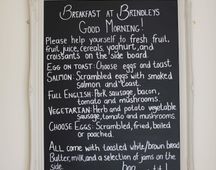 BREAKFAST AT BRINDLEYS
GOOD MORNING!
Please help yourself to fresh fruit,
fruit juice, cereals, yoghurt, and
croissants on the side board
EGG ON TOAST: Choose eggs and toast
SALMON: Scrambled eggs with smoked
salmon and toast.
FULL ENGLISH: Pork sausage, bacon,
tomato and mushrooms.
VEGETARIAN: Herb and potato vegetable
sausage, tomato and mushrooms.
CHOOSE EGGS: Scrambled, fried, boiled
or poached.
ALL come with toasted white/brown bread
Butter, milk, and a selection of jams on the